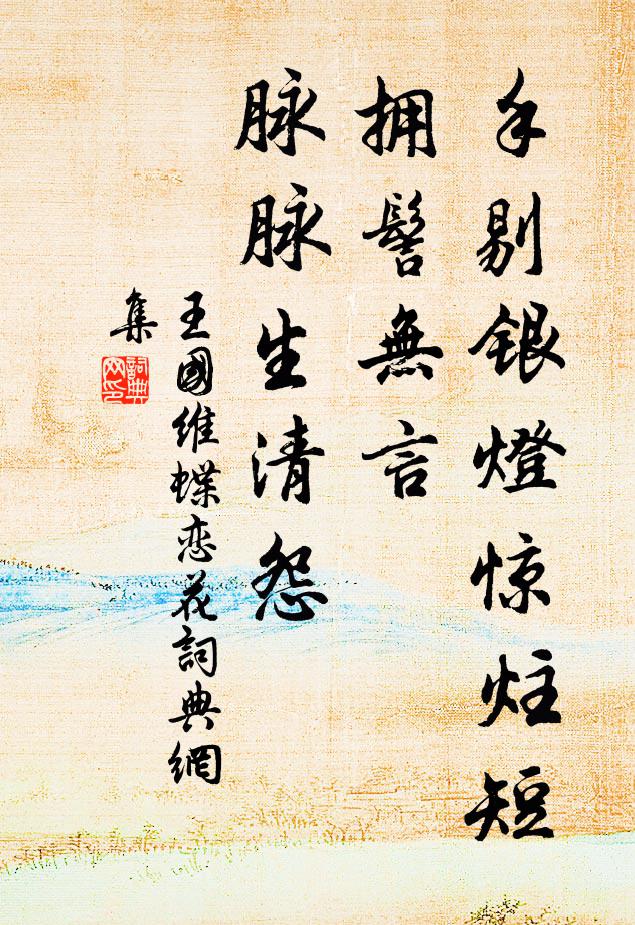 手剔银燈惊炷短
拥髻無言
脉脉生清怨
王國维蝶恋花詞典網
集
詞典
网印